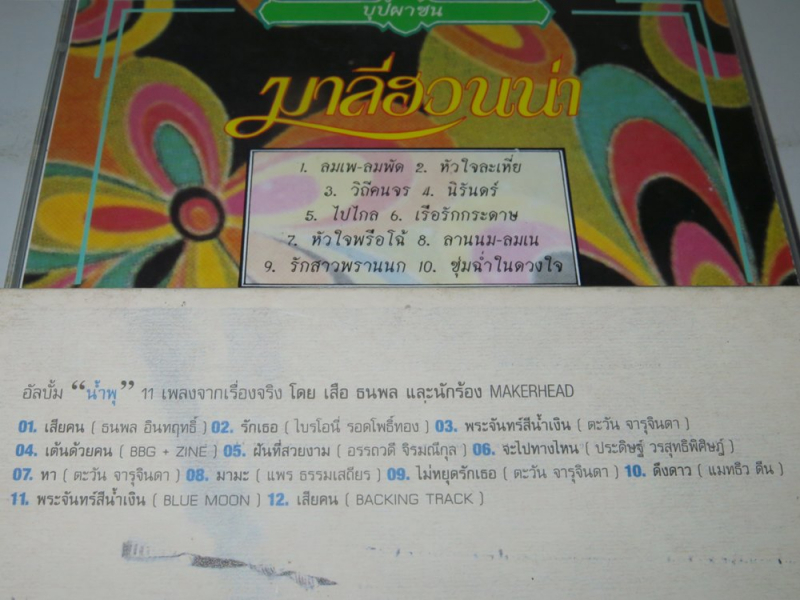 บุปผาชน
มาลีฮวนน่า
1. ลมเพ-ลมพัด 2. หัวใจละเหี่ย
3. วิถีคนจร 4. นิรันดร์
5. ไปไกล 6. เรือรักกระดาษ
7. หัวใจพรือโฉ้ 8. ลานนม-ลมเน
9. รักสาวพรานนก 10. ชุ่มฉ่ำในดวงใจ
อัลบั้ม “น้ำพุ” 11 เพลงจากเรื่องจริง โดย เสือ ธนพล และนักร้อง MAKERHEAD
01. เสียคน ( ธนพล อินทฤทธิ์ ) 02. รักเธอ ( ไบรโอนี่ รอดโพธิ์ทอง ) 03. พระจันทร์สีน้ำเงิน ( ตะวัน จารุจินดา )
04. เต้นด้วยคน ( BBG + ZINE ) 05. ฝันที่สวยงาม ( อรรถวดี จิรมณีกุล ) 06. จะไปทางไหน ( ประดิษฐ์ วรสุทธิพิศิษฎ์ )
07. หา ( ตะวัน จารุจินดา ) 08. มามะ ( แพร ธรรมเสถียร ) 09. ไม่หยุดรักเธอ ( ตะวัน จารุจินดา ) 10. ดึงดาว ( แมทธิว ดีน )
11. พระจันทร์สีน้ำเงิน ( BLUE MOON ) 12. เสียคน ( BACKING TRACK )